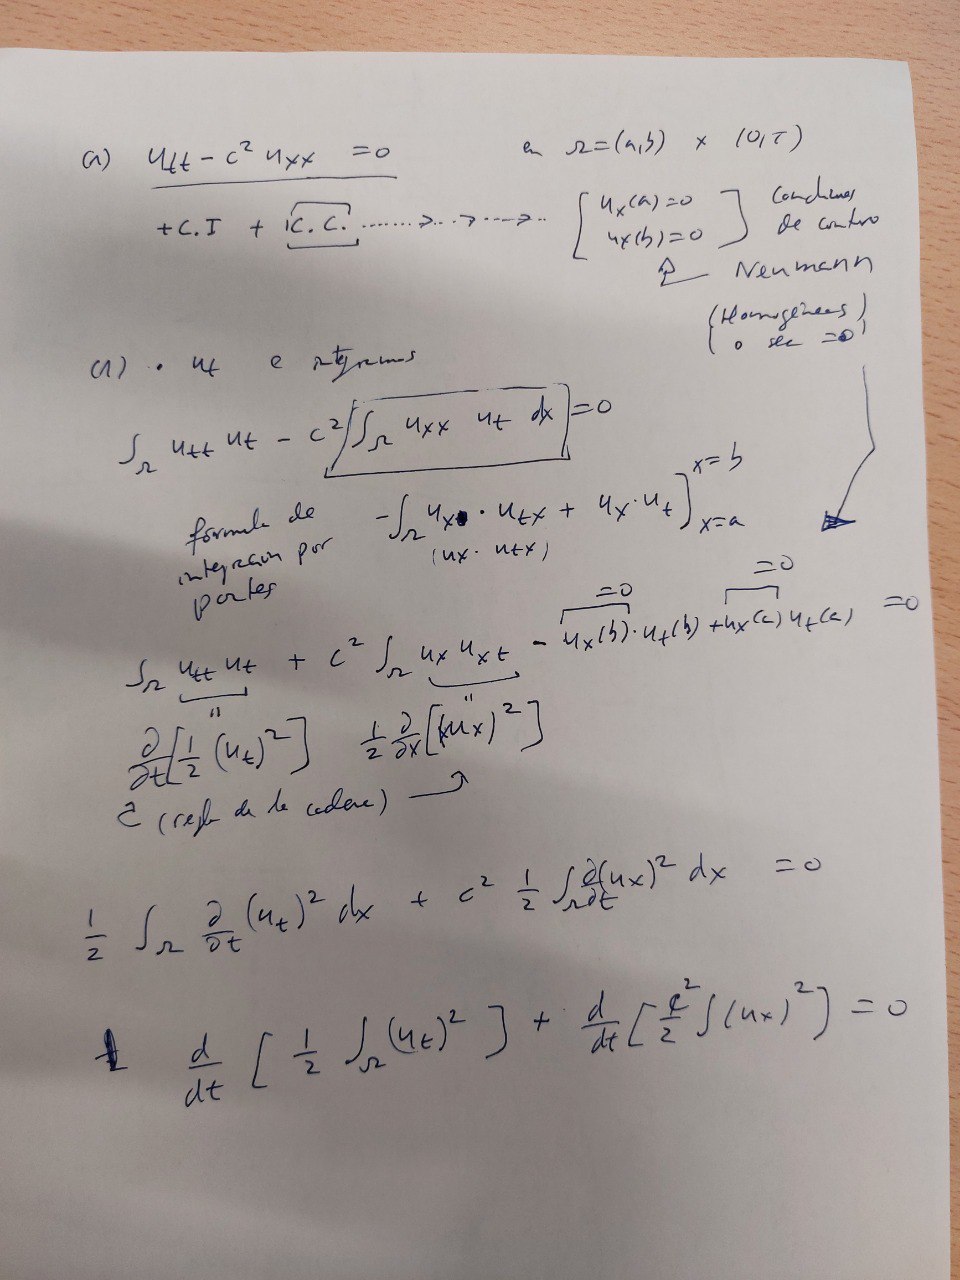 (1) u_tt - c² u_xx = 0 en Ω=(a,b) x (0,T)
+ C.I + C.C. [ u_x(a)=0
u_x(b)=0 ] Condiciones
de contorno
Neumann
(Homogéneas
o sea =0)
(1) · u_t e integramos
∫_Ω u_tt u_t - c² ∫_Ω u_xx u_t dx = 0
fórmula de
integración por
partes
-∫_Ω u_x · u_tx + u_x · u_t ]_{x=a}^{x=b}
(u_x · u_tx)
=0 =0
∫_Ω u_tt u_t + c² ∫_Ω u_x u_xt - u_x(b)·u_t(b) + u_x(a) u_t(a) = 0
" "
∂/∂t [1/2 (u_t)²] 1/2 ∂/∂x [(u_x)²]
(regla de la cadena)
1/2 ∫_Ω ∂/∂t (u_t)² dx + c² 1/2 ∫_Ω ∂/∂t (u_x)² dx = 0
d/dt [ 1/2 ∫_Ω (u_t)² ] + d/dt [ c²/2 ∫ (u_x)² ] = 0